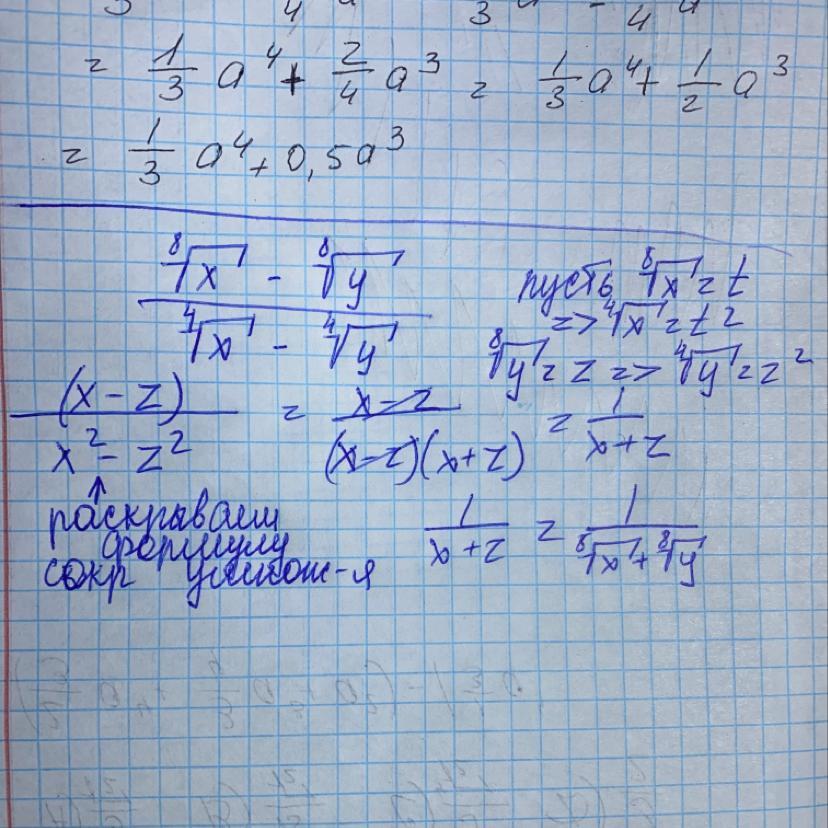 = 1/3 a⁴ + 2/4 a³ = 1/3 a⁴ + 1/2 a³
= 1/3 a⁴ + 0,5a³
(⁸√x - ⁸√y) / (⁴√x - ⁴√y)
пусть ⁸√x = t
=> ⁴√x = t²
⁸√y = z => ⁴√y = z²
(x - z) / (x² - z²) = (x - z) / ((x - z)(x + z)) = 1 / (x + z)
раскрываем
формулу
сокр умнож-я
1 / (x + z) = 1 / (⁸√x + ⁸√y)